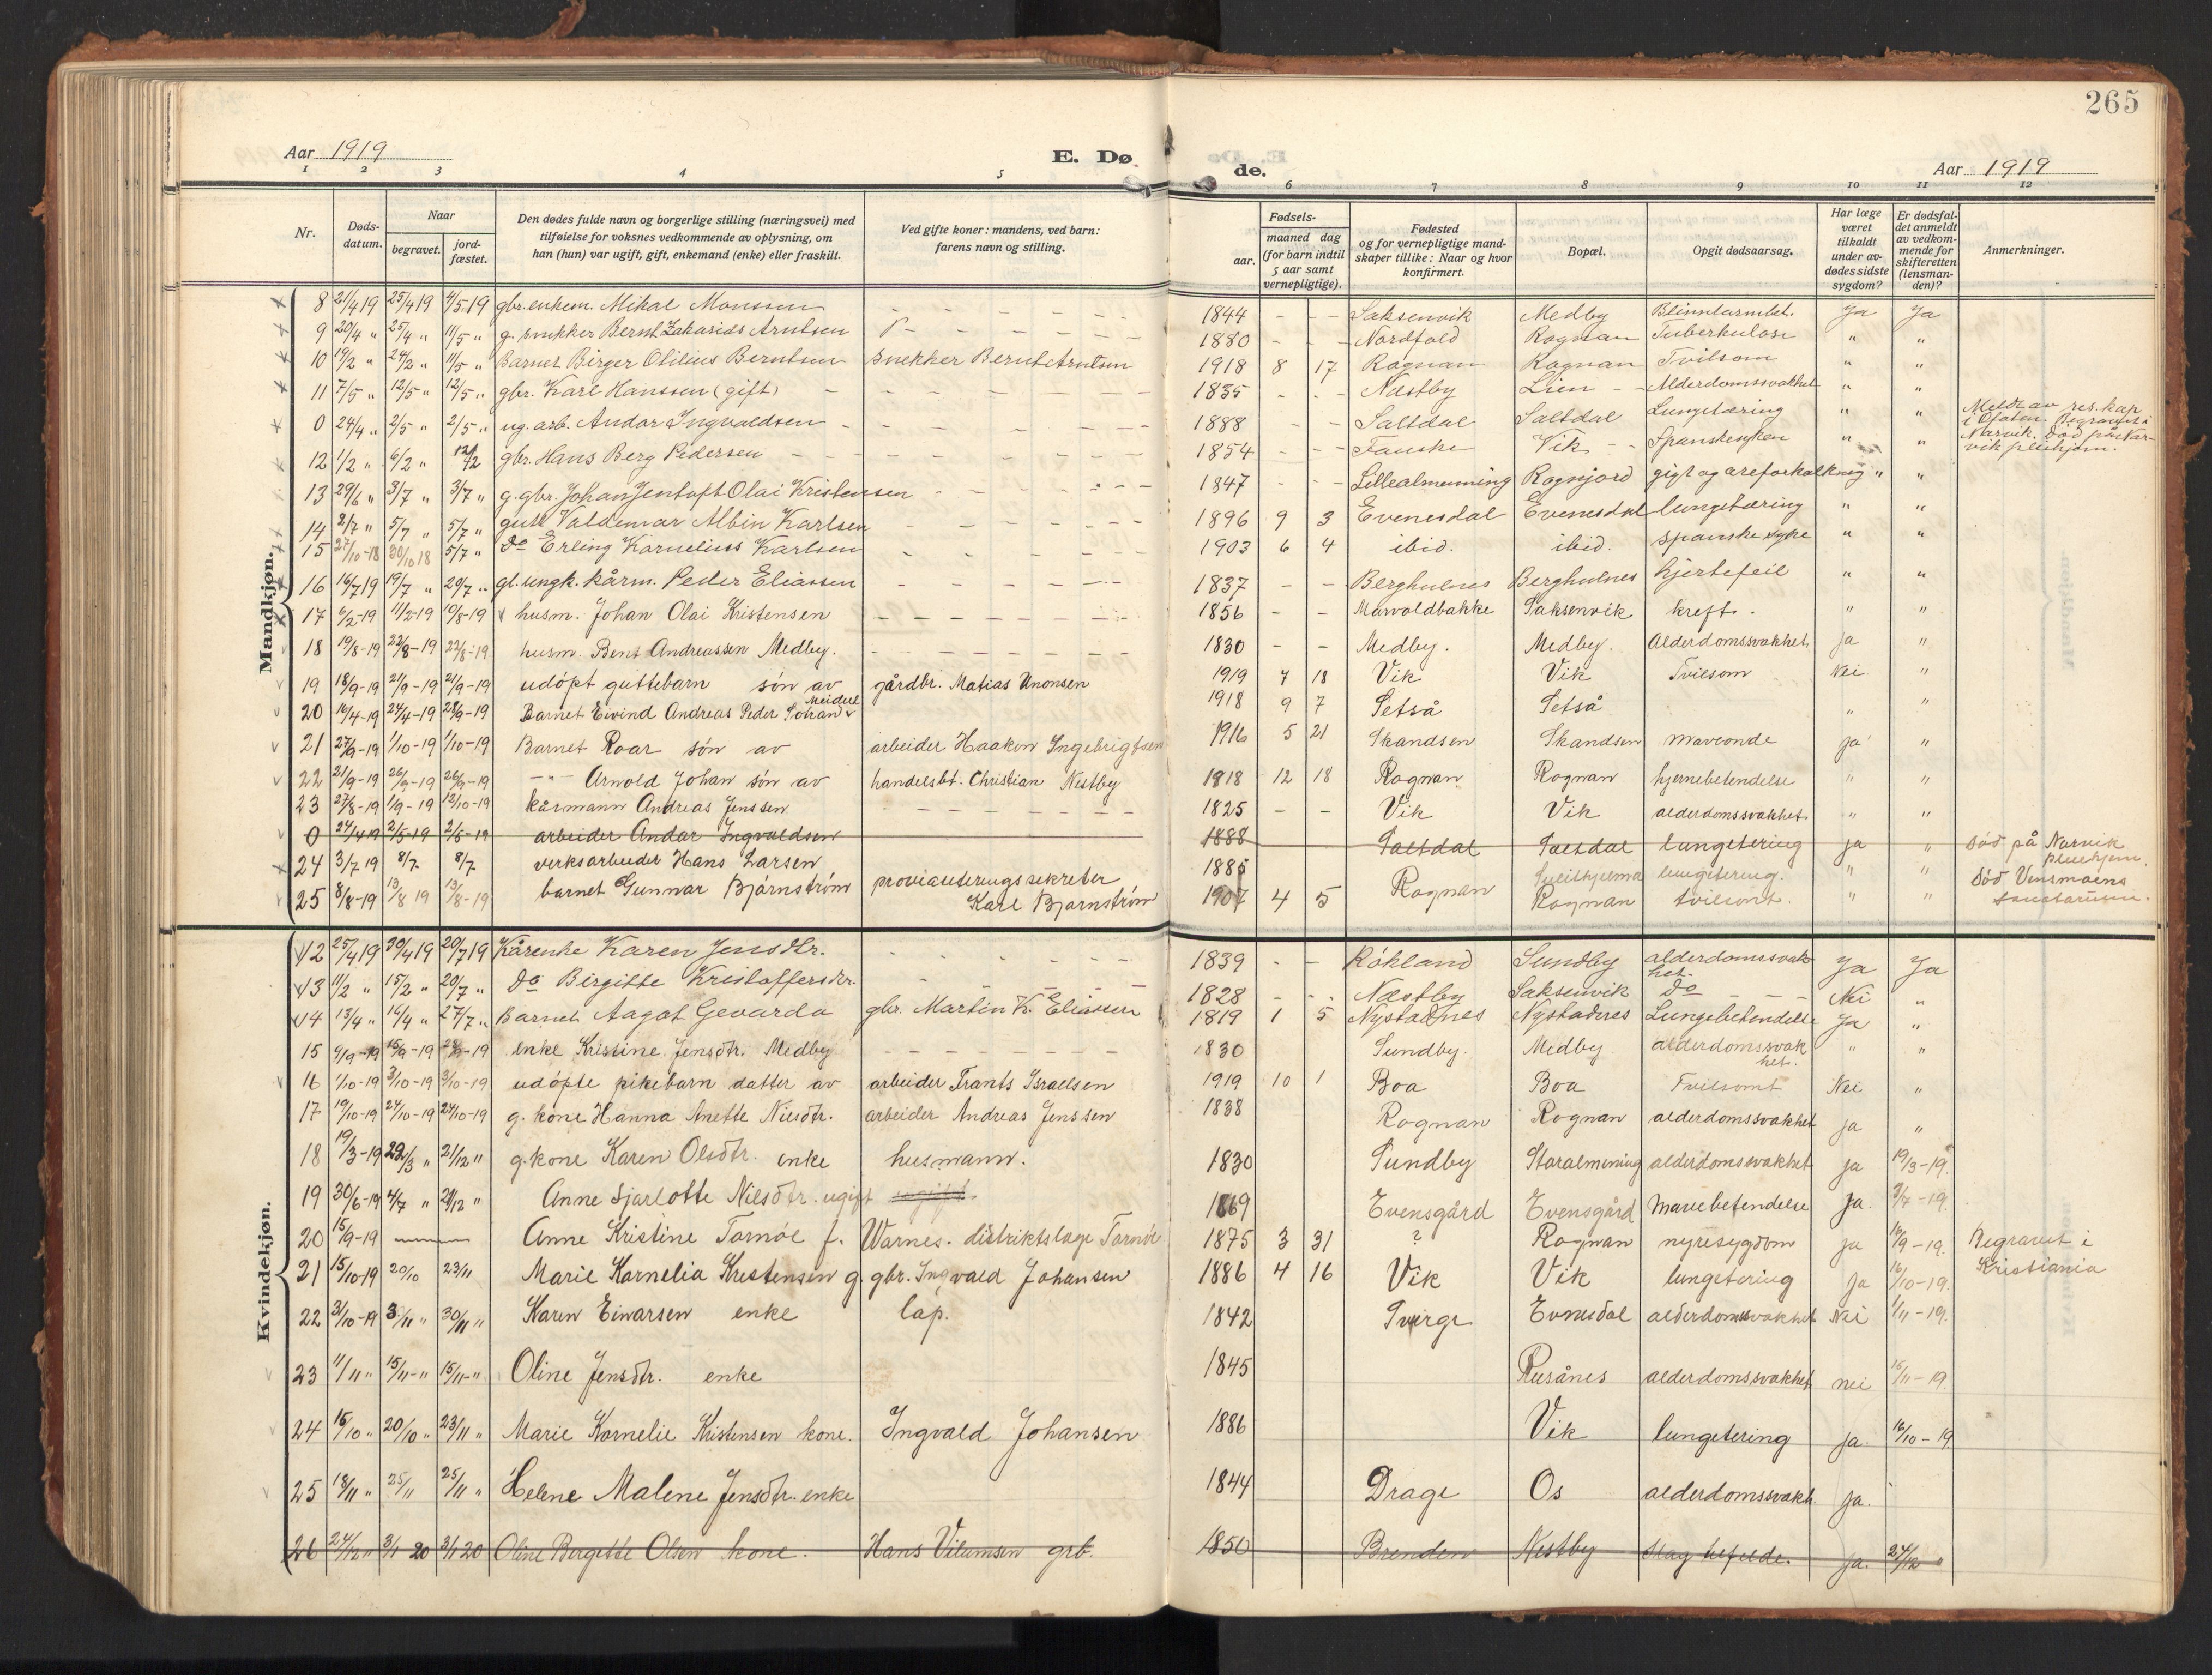 265
Aar 1919
E. Dø
de.
Aar 1919
1 2 3 4 5 6 7 8 9 10 11 12
Nr.
Døds-
datum.
Naar
begravet.
jord-
fæstet.
Den dødes fulde navn og borgerlige stilling (næringsvei) med
tilføielse for voksnes vedkommende av oplysning, om
han (hun) var ugift, gift, enkemand (enke) eller fraskilt.
Ved gifte koner: mandens, ved barn:
farens navn og stilling.
Fødsels-
aar.
maaned dag
(for barn indtil
5 aar samt
vernepligtige).
Fødested
og for vernepligtige mand-
skaper tillike: Naar og hvor
konfirmert.
Bopæl.
Opgit dødsaarsag.
Har læge
været
tilkaldt
under av-
dødes sidste
sygdom?
Er dødsfal-
det anmeldt
av vedkom-
mende for
skifteretten
(lensman-
den)?
Anmerkninger.
Mandkjøn.
8 21/4 19 25/4 19 4/5.19 gbr. enkem. Mikal Monssen - - - 1844 - - - Saksenvik Medby Blindtarmbet. Ja Ja
9 20/4 " 25/4 " 11/5 " g. snekker Bernt Zakarias Arntsen - - - 1880 - - - Nordfold Rognan Tuberkulose " "
10 19/2 " 24/2 " 11/5 " Barnet Birger Otilius Berntsen snekker Bernt Arntsen 1918 8 17 Rognan Rognan Tvilsom " "
11 7/5 " 12/5 " 12/5 " gbr. Karl Hanssen (gift) - - - 1835 - - - Næstby Lien - - Alderdomssvakhet " "
0 24/4 " 2/5 " 2/5 " ug. arb. Andor Ingvaldsen - - - 1888 - - - Saltdal Saltdal Lungetæring " " Meldt av res. kap
i Ofoten. Begravet i
Narvik. Død på Nar-
vik pleiehjem.
12 1/2 " 6/2 " 12/2 gbr. Hans Berg Pedersen - - - 1854 - - - Fauske Vik - - Spanskesyken " "
13 29/6 " 3/7 " 3/7 " g. gbr. Johan Jentoft Olai Kristensen - - - 1847 - - - Lillealmenning Rognjord gigt og areforkalkning " "
14 2/7 " 5/7 " 5/7 " gutt Valdemar Albin Karlsen - - - 1896 9 3 Evenesdal Evenesdal lungetæring " "
15 27/10-18 30/10 18 5/7 " do Erling Kornelius Karlsen - - - 1903 6 4 ibid. ibid. spanske syke " "
16 16/7 19 19/7 " 20/7 " gl. ungk. kårm. Peder Eliassen - - - 1837 - - Berghulnes Berghulnes hjertefeil " "
17 6/2-19 11/2-19 10/8-19 husm. Johan Olai Kristensen - - - 1856 - - Marvoldbakke Saksenvik kreft. " "
18 19/8-19 22/8-19 22/8-19 husm. Bent Andreassen Medby. - - - 1830 - - Medby. Medby. Alderdomssvakhet ja "
19 18/9-19 21/9-19 21/9-19 udöpt guttebarn sön av gårdbr. Matias Unonsen 1919 7 18 Vik Vik Tvilsom Nei "
20 16/4-19 24/4-19 28/9-19 Barnet Eivind Andreas Peder Johan 1918 9 7 Setså Setså " "
21 27/9-19 1/10-19 1/10-19 Barnet Roar sön av arbeider Haakon Ingebrigtsen 1916 5 21 Skandsen Skandsen maveonde ja "
22 21/9-19 26/9-19 26/9-19 -"- Arnold Johan sön av handelsbt. Christian Nestby 1918 12 18 Rognan Rognan hjernebetendelse " "
23 27/8-19 1/9-19 12/10-19 kårmann Andreas Jenssen - - - 1825 - - Vik Vik alderdomssvakhet " "
0 24/4 19 2/5-19 2/5-19 arbeider Andor Ingvaldsen 1888 Saltdal Saltdal lungetering ja " död på Narvik
pleiehjem.
24 3/7 19 8/7 8/7 verksarbeider Hans Larsen 1885 Sulitjelma lungetering. " " död Vensmoens
sanatorium.
25 8/8-19 13/8 19 13/8-19 barnet Gunnar Bjørnstrøm provianteringssekretær
Karl Bjørnstrøm 1907 4 5 Rognan Rognan tvilsomt. " "
Kvindekjøn.
12 25/4 19 30/4 19 20/7 19 Kårenke Karen Jensdtr. - - - 1839 - - Rökland Sundby alderdomssvak-
het. Ja Ja
13 11/2 " 15/2 " 20/7 " do Birgitte Kristoffersdtr. - - - 1828 - - - Næstby Saksenvik do - - - Nei "
14 13/4 " 16/4 " 27/7 " Barnet Aagot Gevarda gbr. Martin K. Eliassen 1819 1 5 Nystadnes Nystadnes Lungebetendelse Ja "
15 9/9-19 15/9-19 28/9-19 enke Kristine Jensdtr. Medby - - - 1830 Sundby. Medby alderdomssvak
het. " "
16 1/10-19 3/10-19 3/10-19 udöpte pikebarn datter av arbeider Frants Israelsen 1919 10 1 Boa Boa Tvilsomt Nei "
17 19/10-19 24/10-19 24/10-19 g. kone Hanna Anette Nilsdtr. arbeider Andreas Jenssen 1838 Rognan Rognan alderdomssvakhet ja "
18 19/3-19 29/3 " 21/12 " g. kone Karen Olsdtr. enke husmann. 1830 Sundby Storalmening alderdomssvakhet ja 19/3-19.
19 30/6-19 4/7 " 21/12 " Anne Sjarlotte Nilsdtr. ugift ugift. 1869 Evensgård Evensgård Mavebetendelse Ja. 2/7-19.
20 15/9-19 Anne Kristine Tornöe f. Warnes. distriktslæge Tornöe 1875 3 31 ? Rognan nyresygdom ja 16/9-19. Begravet i
Kristiania
21 15/10-19 20/10 23/11 Marie Kornelia Kristensen g. gbr. Ingvald Johansen 1886 4 16 Vik Vik lungetering ja 16/10-19.
22 31/10-19 3/11 " 30/11 " Karen Einarsen enke lap. 1842 Sverge Evnesdal alderdomssvakhet Nei 1/11-19.
23 11/11 " 15/11-" 15/11-" Oline Jensdtr. enke 1845 Rusånes alderdomssvakhet nei 15/11-19.
24 15/10 " 20/10 " 23/11 " Marie Kornelie Kristensen kone. Ingvald Johansen 1886 Vik lungetering ja. 16/10-19
25 18/11 " 25/11 25/11 " Helene Malene Jensdtr. enke 1844 Drage Os alderdomssvakh. ja.
26 24/12 " 3/1 20 3/1 20 Oline Bergitte Olsen kone. Hans Vilumsen grb. 1850 Brenden Nestby Slagtilfelde. ja. 24/12 "